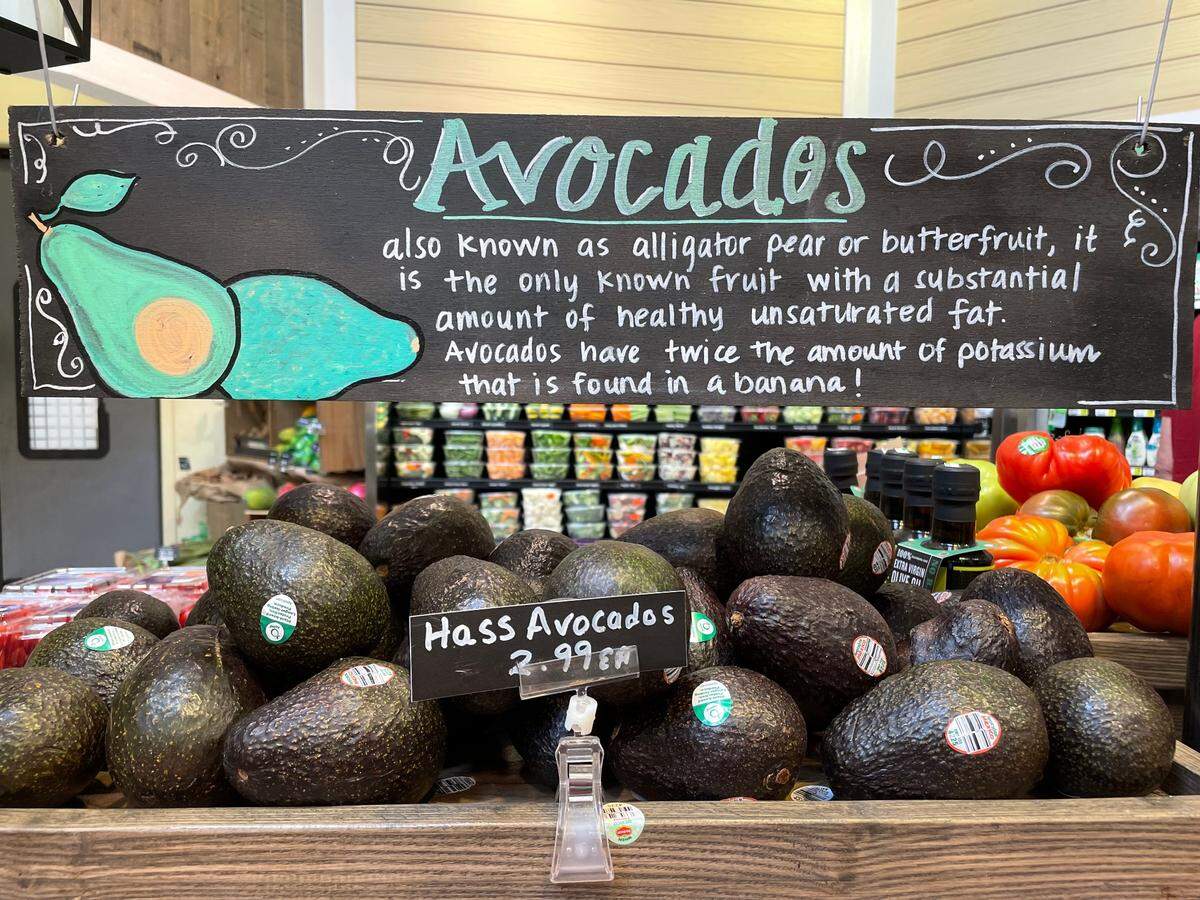 Avocados
also known as alligator pear or butterfruit, it
is the only known fruit with a substantial
amount of healthy unsaturated fat.
Avocados have twice the amount of potassium
that is found in a banana!
Hass Avocados
2.99 EA
100%
EXTRA VIRGIN
OLIVE OIL